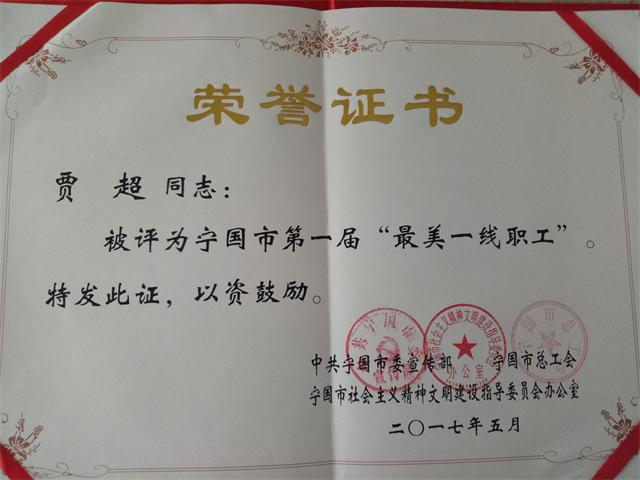 荣誉证书
贾 超 同志：
被评为宁国市第一届“最美一线职工”。
特发此证，以资鼓励。
中共宁国市委宣传部 宁国市总工会
宁国市社会主义精神文明建设指导委员会办公室
二〇一七年五月